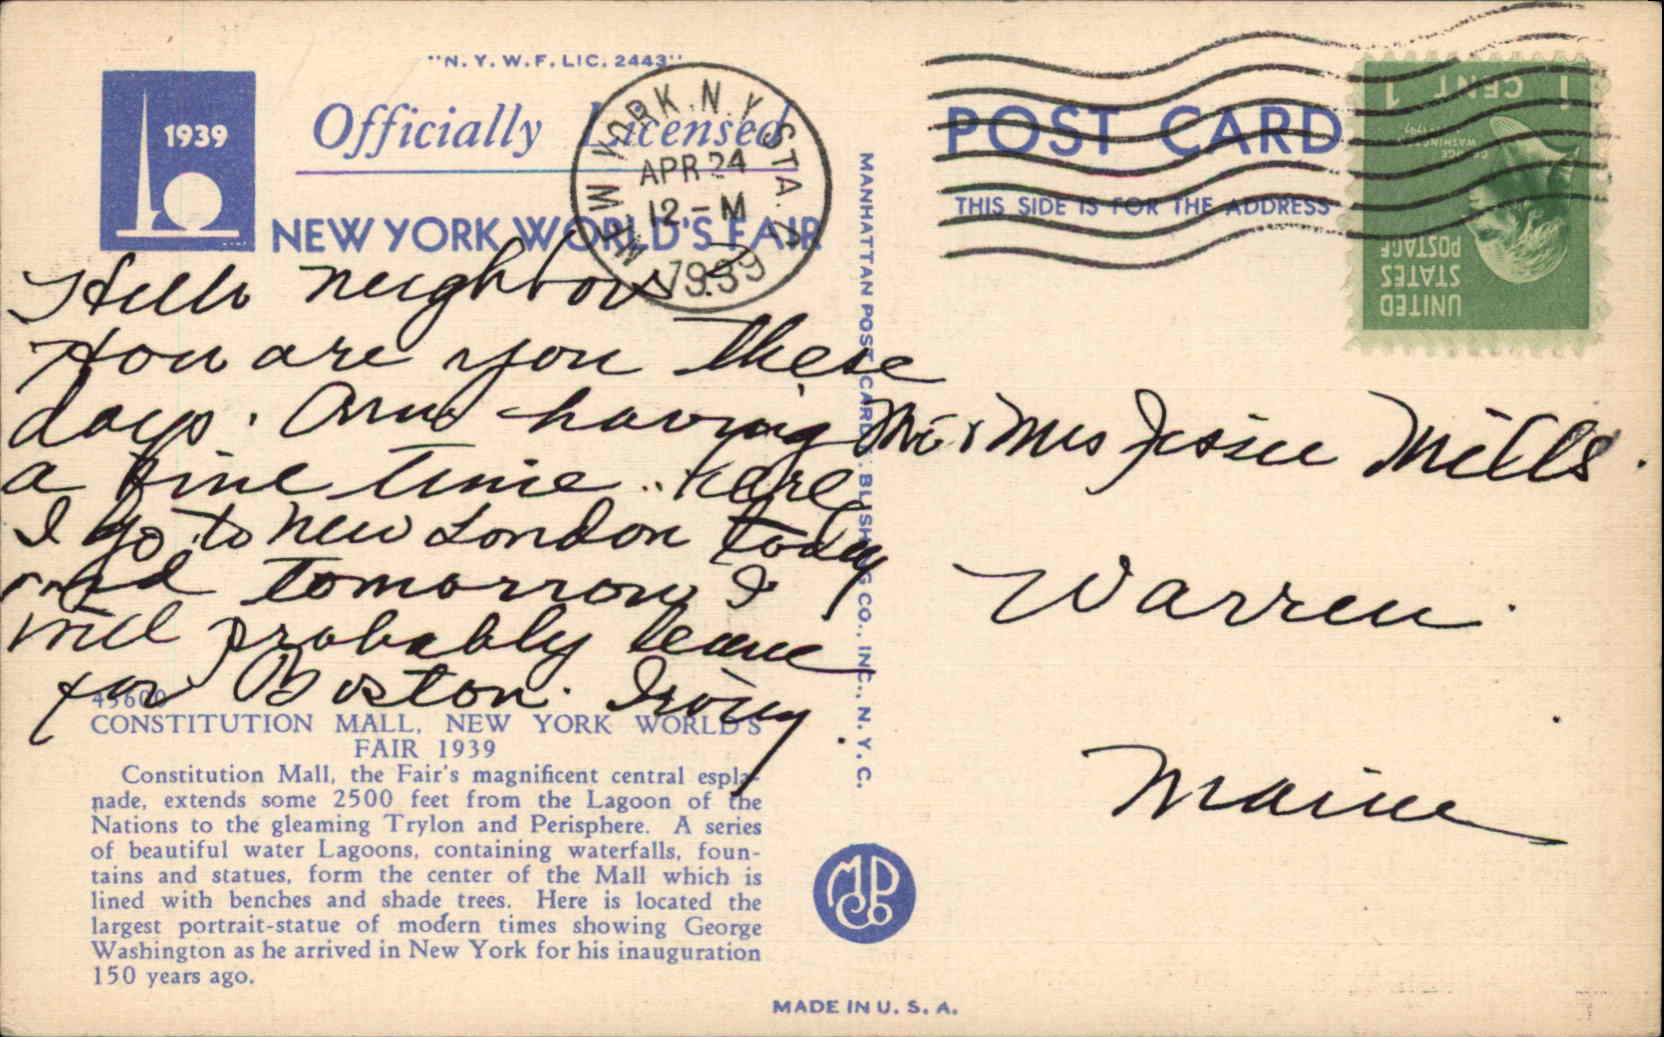 "N. Y. W. F. LIC. 2443"
1939
Officially Licensed
NEW YORK WORLD'S FAIR
NEW YORK, N.Y. STA.
APR 24
12-M
1939
POST CARD
THIS SIDE IS FOR THE ADDRESS
1 CENT 1
GEORGE WASHINGTON
UNITED
STATES
POSTAGE
Hello neighbors
How are you these
days. Am having
a fine time .. here
I go to New London today
and tomorrow I
will probably leave
for Boston. Irving
Mr & Mrs Jessie Mills.
Warren.
Maine
MANHATTAN POST CARD PUBLISHING CO., INC., N. Y. C.
45600
CONSTITUTION MALL, NEW YORK WORLD'S
FAIR 1939
Constitution Mall, the Fair's magnificent central espla-
nade, extends some 2500 feet from the Lagoon of the
Nations to the gleaming Trylon and Perisphere. A series
of beautiful water Lagoons, containing waterfalls, foun-
tains and statues, form the center of the Mall which is
lined with benches and shade trees. Here is located the
largest portrait-statue of modern times showing George
Washington as he arrived in New York for his inauguration
150 years ago.
MPCCo
MADE IN U. S. A.